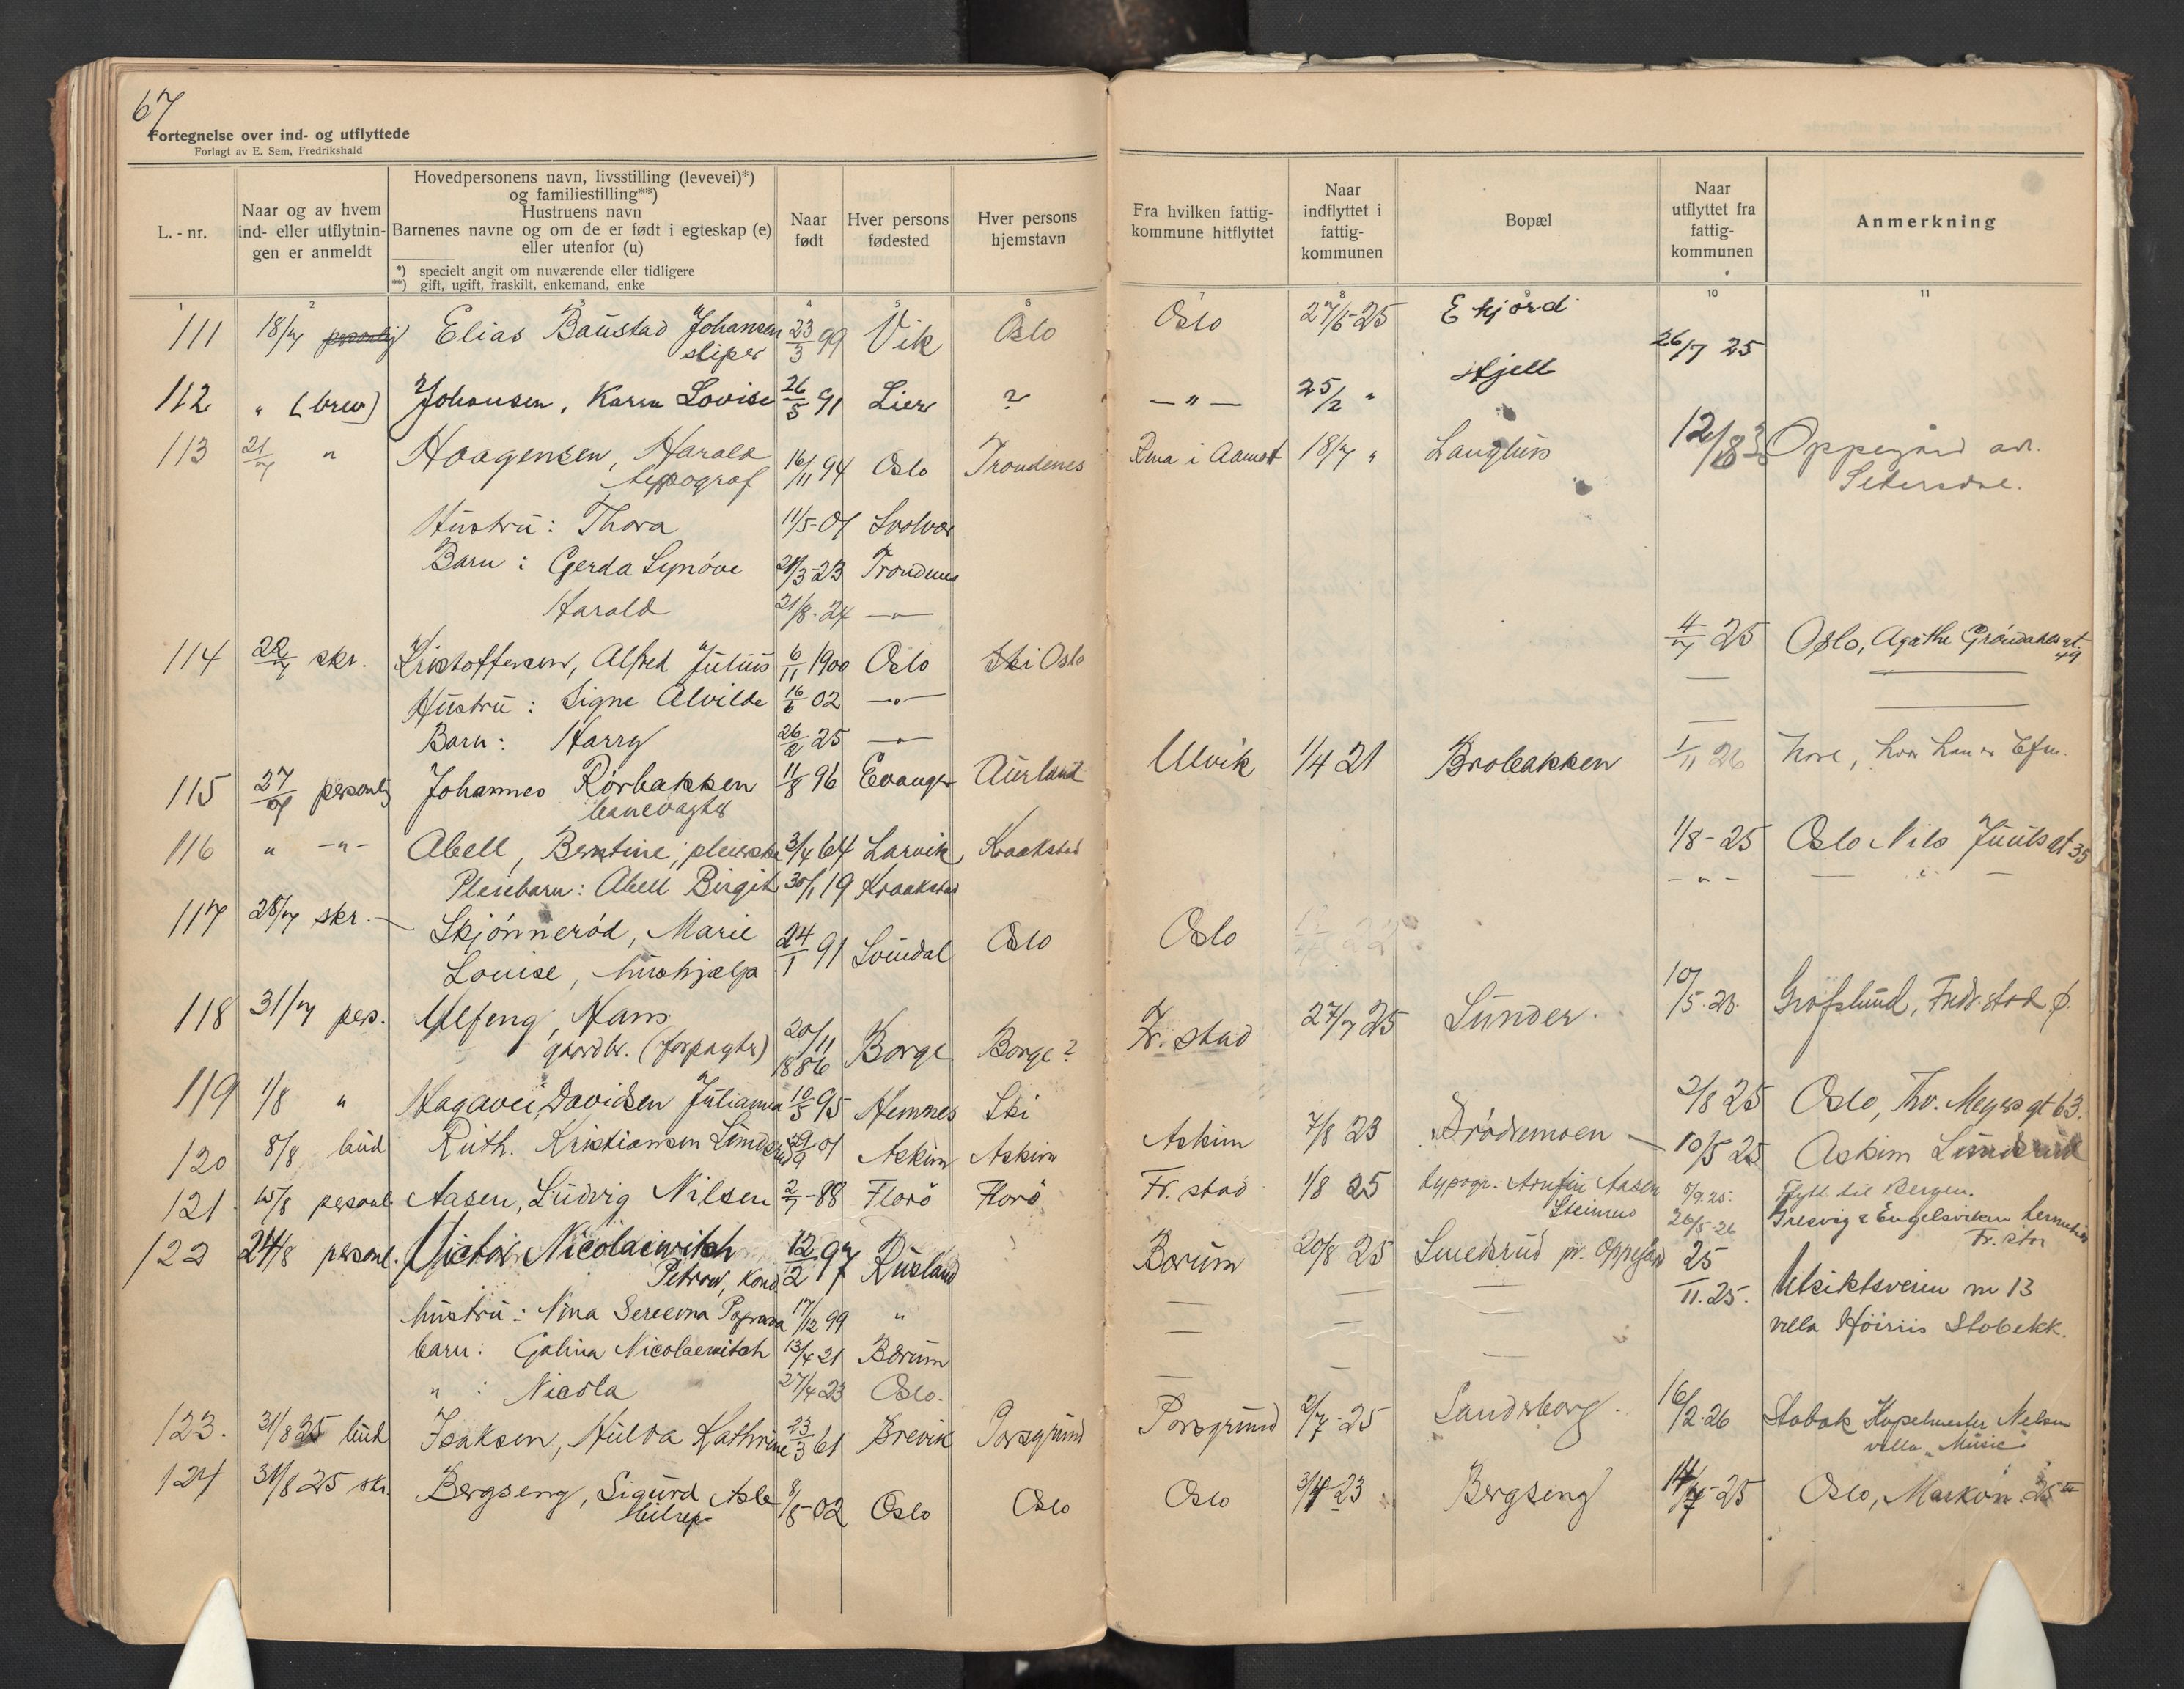 67
Fortegnelse over ind- og utflyttede
Forlagt av E. Sem, Fredrikshald
L.-nr.
Naar og av hvem
ind- eller utflytnin-
gen er anmeldt
Hovedpersonens navn, livsstilling (levevei)*)
og familiestilling**)
Hustruens navn
Barnenes navne og om de er født i egteskap (e)
eller utenfor (u)
*) specielt angit om nuværende eller tidligere
**) gift, ugift, fraskilt, enkemand, enke
Naar
født
Hver persons
fødested
Hver persons
hjemstavn
Fra hvilken fattig-
kommune hitflyttet
Naar
indflyttet i
fattig-
kommunen
Bopæl
Naar
utflyttet fra
fattig-
kommunen
Anmerkning
1 2 3 4 5 6 7 8 9 10 11
111 18/7 personlig Elias Baustad Johansen 23/3 99 Vik Oslo Oslo 27/6-25 Ekjord
sliper 26/7 25
112 " (brev) Johansen, Karen Lovise 26/5 91 Lier ? — " — 25/2 " Hjell
113 21/7 " Haagensen, Harald 16/11 94 Oslo Trondenes Rena i Aamot 18/7 " Langhus 12/8 Oppegård adr.
typograf Setersdal.
Hustru: Thora 11/5-01 Svolvær
Barn: Gerda Synöve 21/3-23 Trondenes
Harald 21/8-24 — " —
114 22/7 skr. Kristoffersen, Alfred Julius 6/11 1900 Oslo Ski Oslo 4/7 25 Oslo, Agathe Gröndahls gt. 49
Hustru: Signe Alvilde 16/6 02 — " — —
Barn: Harry 26/2 25 — " — —
115 27/7 personlig Johannes Rörbakken 11/8 96 Evanger Aurland Ulvik 1/4 21 Brobakken 1/11 26 hvor han er Efm.
banevagter
116 " — " — Abell, Berntine, pleierske 3/4 64 Larvik Kraakstad 1/8-25 Oslo Nils Juuls gt 35
Pleiebarn: Abell Birgit 30/1 19 Kraakstad — " —
117 28/7 skr. — Skjönneröd, Marie 24/1 91 Svindal Oslo Oslo
Louise, hushjælp
118 31/7 pers. Ulfeng, Hans 20/11 1886 Borge Borge? Fr. stad 27/7 25 Sünder. 10/5.26. Grofslund, Fredr.stad
gaardbr. (forpagter)
119 1/8 " Hagavei, Davidsen Julianna 10/5 95 Hemnes Ski 2/8 25 Oslo, Thv. Meyers gt 63.
120 8/8 bud Ruth. Kristiansen Lindsrud 29/9 01 Askim Askim Askim 7/8 23 Drödsemoen — 10/5 25 Askim
121 15/8 personl. Aasen, Ludvig Nilsen 2/7-88 Florö Florö Fr. stad 1/8 25 typogr. Arnfin Aasen 5/9.25. Flytt. til Bergen.
Steinmo 26/5-26 Gresvig & Engelsviken
Fr. stad
122 24/8 personl. Victor Nicolaiwitch 12/2 97 Rusland Bærum 20/8 25 Smedsrud pr. Oppegård 25/11.25. Utsiktsveien nr 13
Petrow, Kond. villa Höiriis Stabekk.
hustru: Nina 17/12 99 " — — —
barn: Galina Nicolaewitch 13/4 21 Bærum — — —
" : Nicola 27/4 23 Oslo. — —
123. 31/8 25 bud Isaksen, Hulda Kathrine 23/3 61 Brevik Porsgrund Porsgrund 2/7-25 Sandsborg. 16/2-26 Stabæk Kapelmester Nelson
villa "Music"
124 31/8 25 skr. Bergseng, Sigurd Asle 8/8-02 Oslo Oslo Oslo 3/4 23 Bergseng 14/7-25 Oslo, Markvn. 25 III